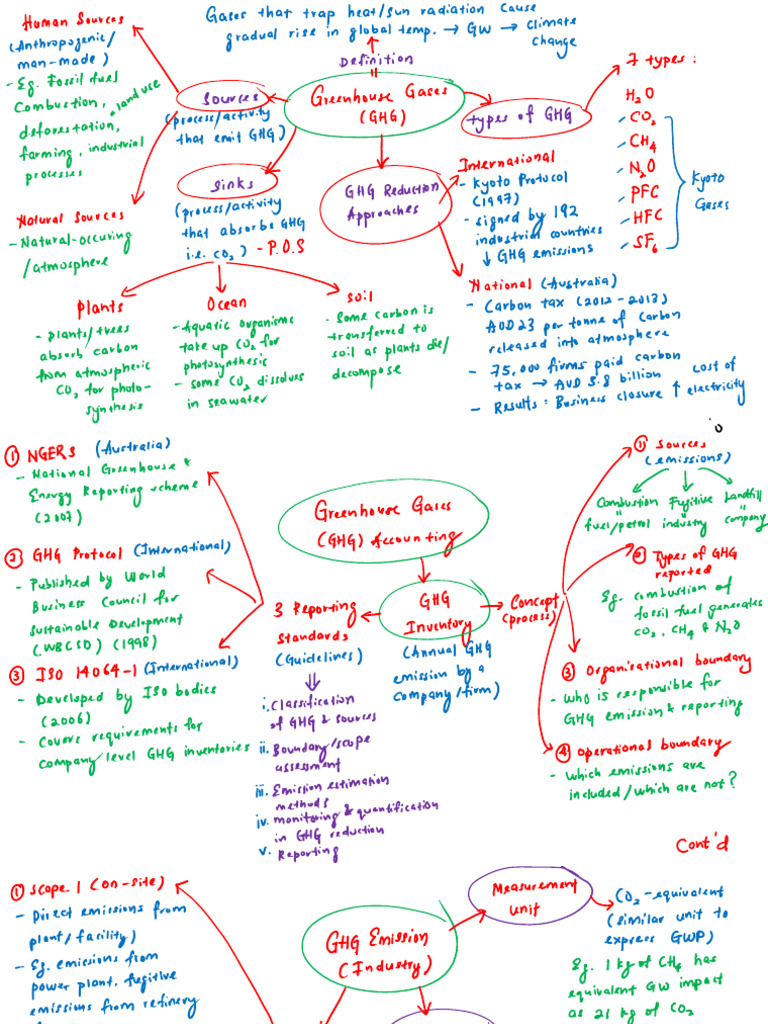 Gases that trap heat/sun radiation cause
gradual rise in global temp. → GW → climate
change
Definition
Greenhouse Gases
(GHG)
Human Sources
(Anthropogenic/
man-made)
- Eg. Fossil fuel
Combustion,
deforestation, land use
farming, industrial
processes
Sources
(process/activity
that emit GHG)
Natural Sources
- Natural-occuring
/atmosphere
Sinks
(process/activity
that absorbe GHG
i.e. CO2) - P.O.S
Plants
- plants/trees
absorb carbon
from atmospheric
CO2 for photo-
synthesis
Ocean
- Aquatic organisms
take up CO2 for
photosynthesis
- some CO2 dissolves
in seawater
Soil
- Some carbon is
transferred to
soil as plants die/
decompose
types of GHG
7 types:
H2O
CO2
CH4
N2O
PFC
HFC
SF6
Kyoto
Gases
GHG Reduction
Approaches
International
- Kyoto Protocol
(1997)
- signed by 192
industrial countries
↓ GHG emissions
National (Australia)
- Carbon tax (2012-2013)
AUD23 per tonne of carbon
released into atmosphere
- 75,000 firms paid carbon
tax → AUD 5.8 billion
- Results: Business closure ↑ cost of
electricity
Greenhouse Gases
(GHG) Accounting
GHG
Inventory
(Annual GHG
emission by a
company/firm)
3 Reporting
standards
(Guidelines)
i. Classification
of GHG & sources
ii. Boundary/scope
assessment
iii. Emission estimation
methods
iv. monitoring & quantification
in GHG reduction
v. Reporting
① NGERs (Australia)
- National Greenhouse &
Energy Reporting scheme
(2007)
② GHG Protocol (International)
- Published by World
Business Council for
Sustainable Development
(WBCSD) (1998)
③ ISO 14064-1 (International)
- Developed by ISO bodies
(2006)
- Covers requirements for
company level GHG inventories
Concept
(process)
① Sources
(emissions)
Combustion Fugitive Landfill
" " "
fuel/petrol industry company
② Types of GHG
reported
Eg. combustion of
fossil fuel generates
CO2, CH4 & N2O
③ Organisational boundary
- Who is responsible for
GHG emission & reporting
④ Operational boundary
- Which emissions are
included/which are not?
Cont'd
GHG Emission
(Industry)
① Scope 1 (on-site)
- Direct emissions from
plant/facility)
- Eg. emissions from
power plant, fugitive
emissions from refinery
Measurement
unit
CO2-equivalent
(similar unit to
express GWP)
Eg. 1 kg of CH4 has
equivalent GW impact
as 21 kg of CO2